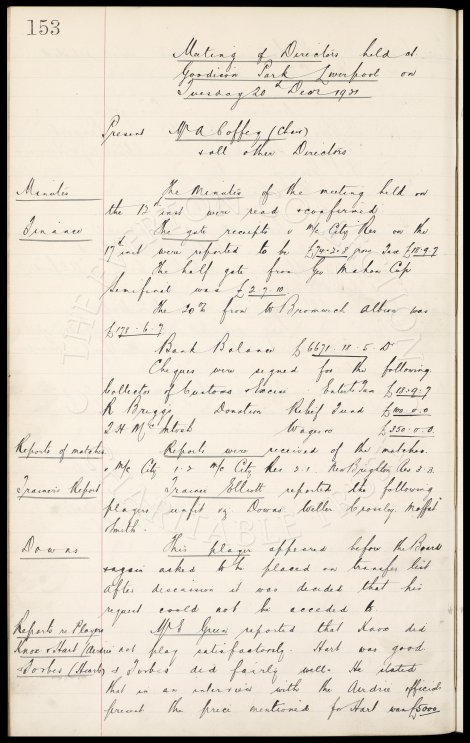 153
Meeting of Directors held at
Goodison Park Liverpool on
Tuesday 20th Decr 1931
Present Mr A Coffey (Chair)
+ all other Directors
Minutes The Minutes of the meeting held on
the 13th inst were read + confirmed.
Finance The gate receipts v M/c City Res on the
17th inst were reported to be £74-3-8 gross Tax £18-9-7
The half gate from Geo Mahon Cup
Semifinal was £2-7-10
The 20% from W Bromwich Albion was
£178-6-7
Bank Balance £6671-18-5 Dr
Cheques were signed for the following
Collector of Customs + Excise Enterts Tax £18-9-7
R Briggs Donation Relief Fund £100-0-0
T H McIntosh Wages £350-0-0
Reports of matches Reports were received of the matches
v M/c City 1-2 M/c City Res 3.1 New Brighton Res 3.3.
Trainers Report Trainer Elliott reported the following
players unfit vz Downs Weller Crossley Moffat
Smith.
Downs This player appeared before the Board
+ again asked to be placed on transfer list
After discussion it was decided that his
request could not be acceded to
Reports re Players Mr E Green reported that Knox did
Knox + Hart (Airdrie) not play satisfactorily. Hart was good
+ Forbes (Hearts) + Forbes did fairly well. He stated
that in an interview with the Airdrie officials
present the price mentioned for Hart was £5000